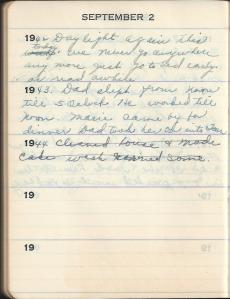 SEPTEMBER 2
1942 Day light again this
today. We never go anywhere
any more just go to bed early.
or read awhile
1943. Dad slept from noon
till 5 oclock. He worked till
noon. Marie came by for
dinner Dad took her on into
1944 Cleaned house & made
Cake wash some
19
19